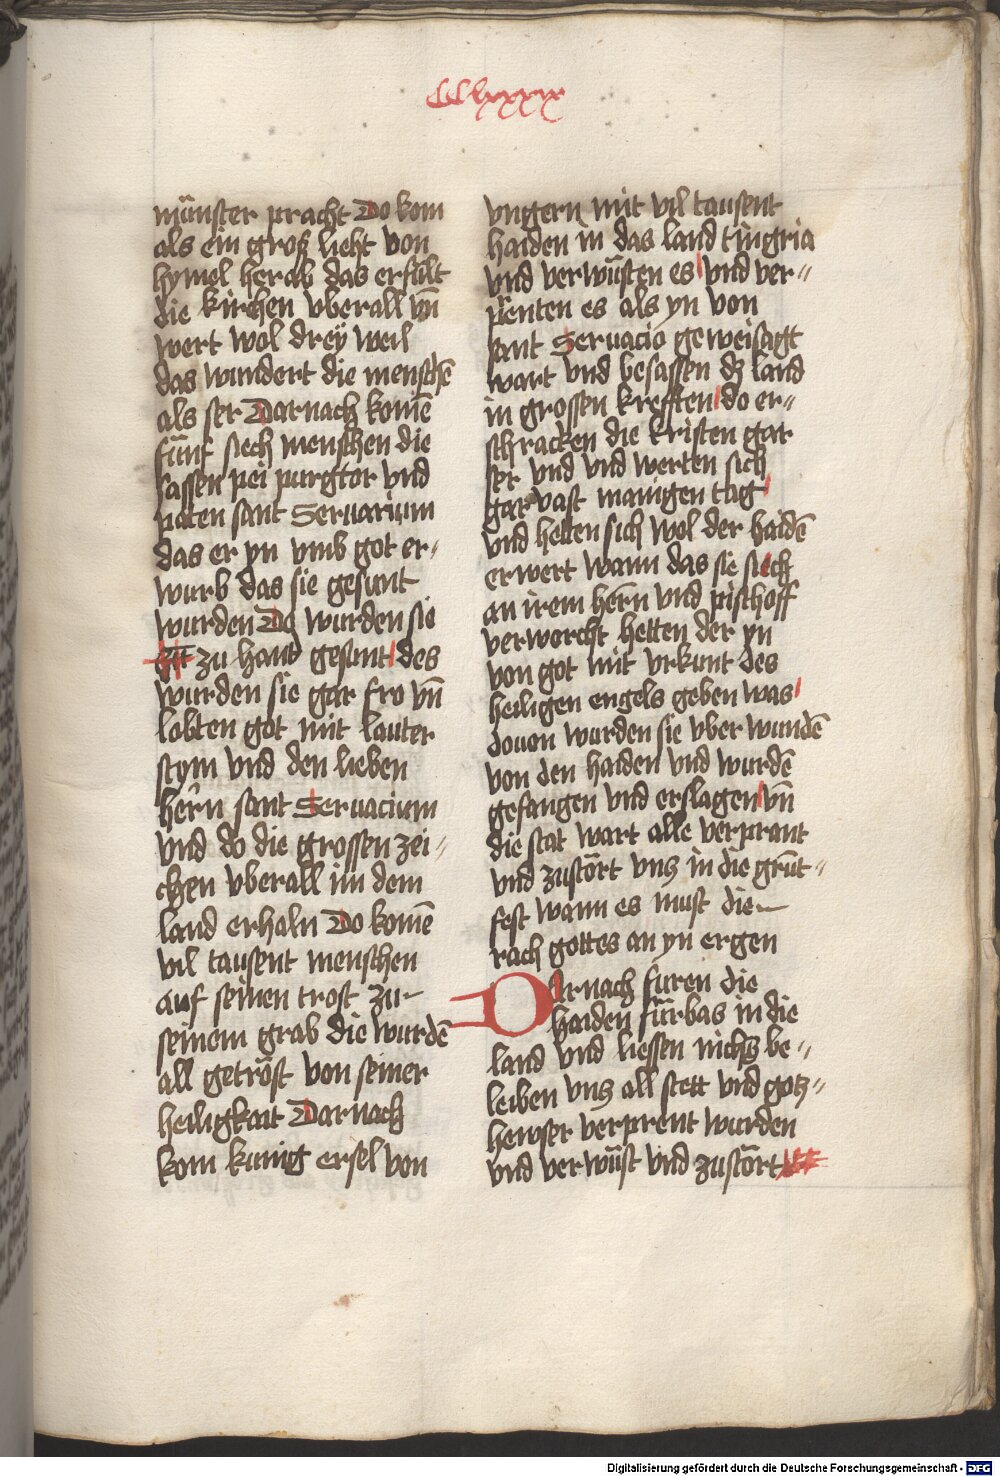 CClxxxix
münster pracht Do kom
als ein groß lieht von
hymel herab das erfült
die kirchen vberall vn̄
wert wol dreÿ weil
das wundert die menschē
als ser Darnach komē
fünf siech menschen die
sassen pei purgtor vnd
paten sant Seruacium
das er yn vmb got er⸗
wurb das sie gesunt
wurden Do wurden sie
zu hant gesunt des
wurden sie gar fro vn̄
lobten got mit lauter
stym vnd den lieben
hern̄ sant Seruacium
vnd do die grossen zei⸗
chen vberall im dem
land erhaln Do komē
vil tausent menschen
auf seinen trost zu
seinem grab die wurdē
all getröst von seiner
heiligkait Darnach
kom kunig ersel von
vngern mit vil tausent
haiden in das land tingria
vnd verwüsten es vnd ver⸗
prenten es als yn von
sant Seruacio geweisagt
wart vnd besassen dz land
in grossen krefften do er⸗
schracken die kristen gar
ser vnd vnd werten sich
gar vast manigen tag
vnd hetten sich wol der haidē
erwert wann das sie sich
an irem hern̄ vnd pischoff
verworcht hetten der yn
von got mit vrkunt des
heiligen engels geben was
douon wurden sie vber wundē
von den haiden vnd wurdē
gefangen vnd erslagen vn̄
die stat wart alle verprant
vnd zustört vnz in die grūt⸗
fest wann es must die
rach gottes an yn ergen
Darnach furen die
haiden fürbas in die
land vnd liessen nichtz be⸗
leiben vnz all stett vnd gotz⸗
hewser verprent wurden
vnd verwüst vnd zustört
Digitalisierung gefördert durch die Deutsche Forschungsgemeinschaft - DFG